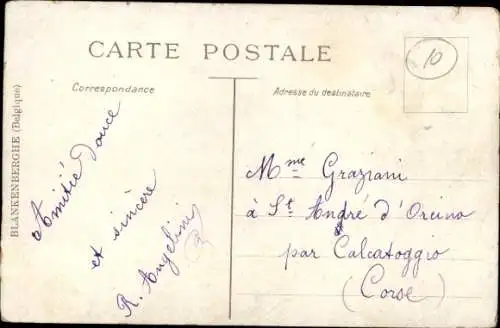 CARTE POSTALE
Correspondance
Adresse du destinataire
10
BLANKENBERGHE (Belgique)
Amitié douce
et sincère
R. Angelini
Mme Graziani
à St André d'Orcino
par Calcatoggio
(Corse)